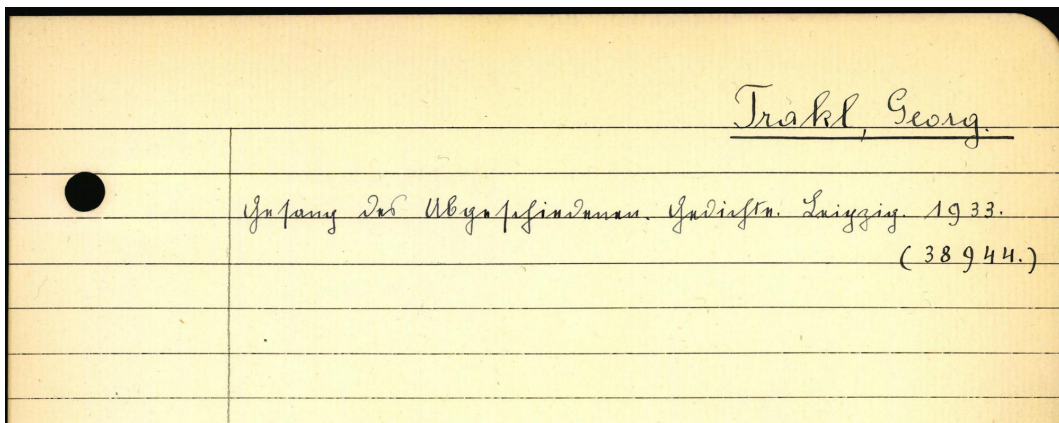 Trakl, Georg.
Gesang des Abgeschiedenen. Gedichte. Leipzig. 1933.
(38944.)